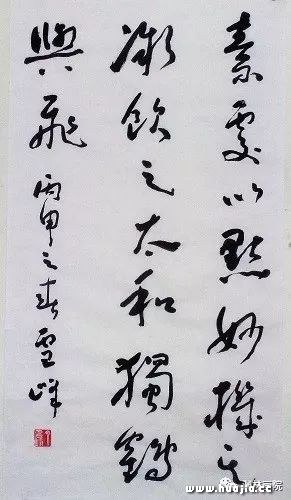 素處以默妙機其
微飲之太和獨鶴
與飛 丙申之春雪峰
www.huajia.cc